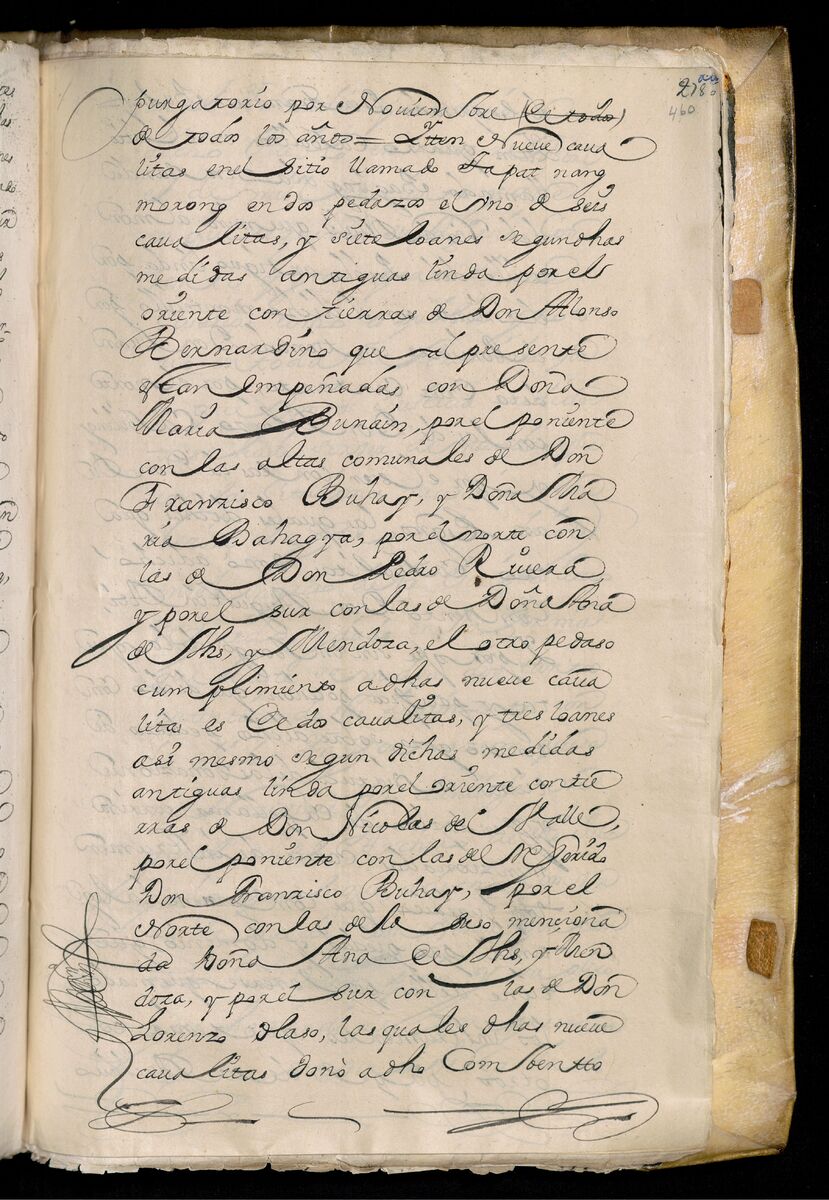 278
460
purgatorio por Noviembre (de todos)
de todos los años = Ytten Nueve cava
litas en el sitio llamado Sapat nang
morong en dos pedazos el vno de seis
cavalitas, y siete loanes segun dhas
medidas antiguas linda por el
oriente con tierras de Don Alonso
Bernardino que al presente
estan Empeñadas con Doña
Maria Bunàin, por el poniente
con las altas comunales de Don
Franzisco Buhay, y Doña Ma
ria Bahagya, por el norte con
las de Don Pedro Rivera,
y por el sur con las de Doña Ana
de Ths, y Mendoza, el otro pedaso
cumplimiento a dhas nueve cava
litas es de dos cavalitas, y tres loanes
asi mesmo segun dichas medidas
antiguas linda por el oriente con tie
rras de Don Nicolas del Valle,
por el poniente con las del referido
Don Franzisco Buhay, por el
Norte con las de la suso menciona
da Doña Ana de Ths, y Men
doza, y por el sur con las de Don
Lorenzo olaso, las quales dhas nueve
cavalitas donò a dho Combentto